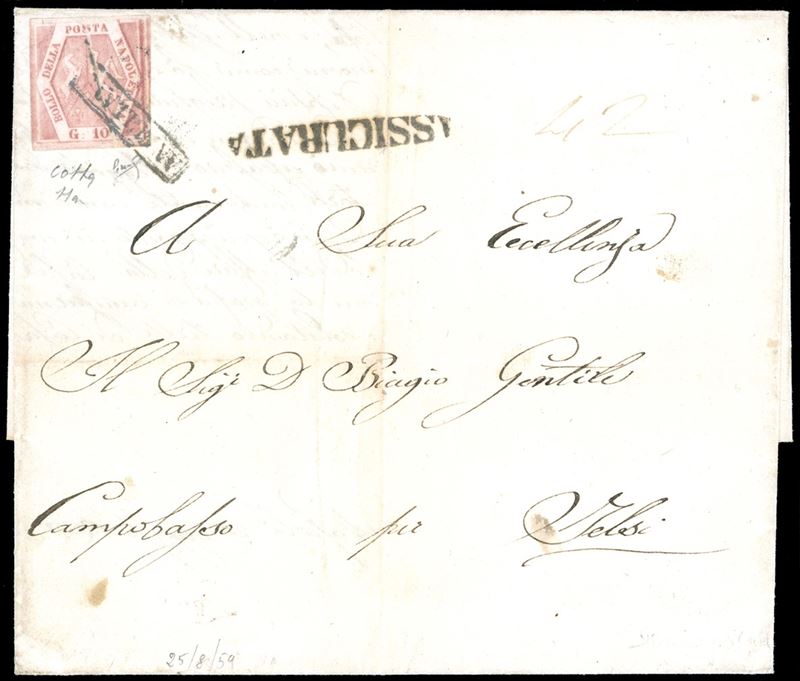 BOLLO DELLA POSTA NAPOLE
G. 10
ANNULLATO
ASSICURATA
42
Cotta
A Sua Eccellenza
Il Sigr D Biagio Gentile
Campobasso per Jelsi
25/8/59